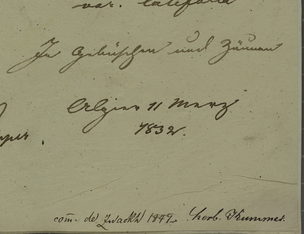 var. latifolia
In Gebüschen und Zäunen
Algier 11 Merz
1832.
com. de Zwackh 1849. herb. Krummel